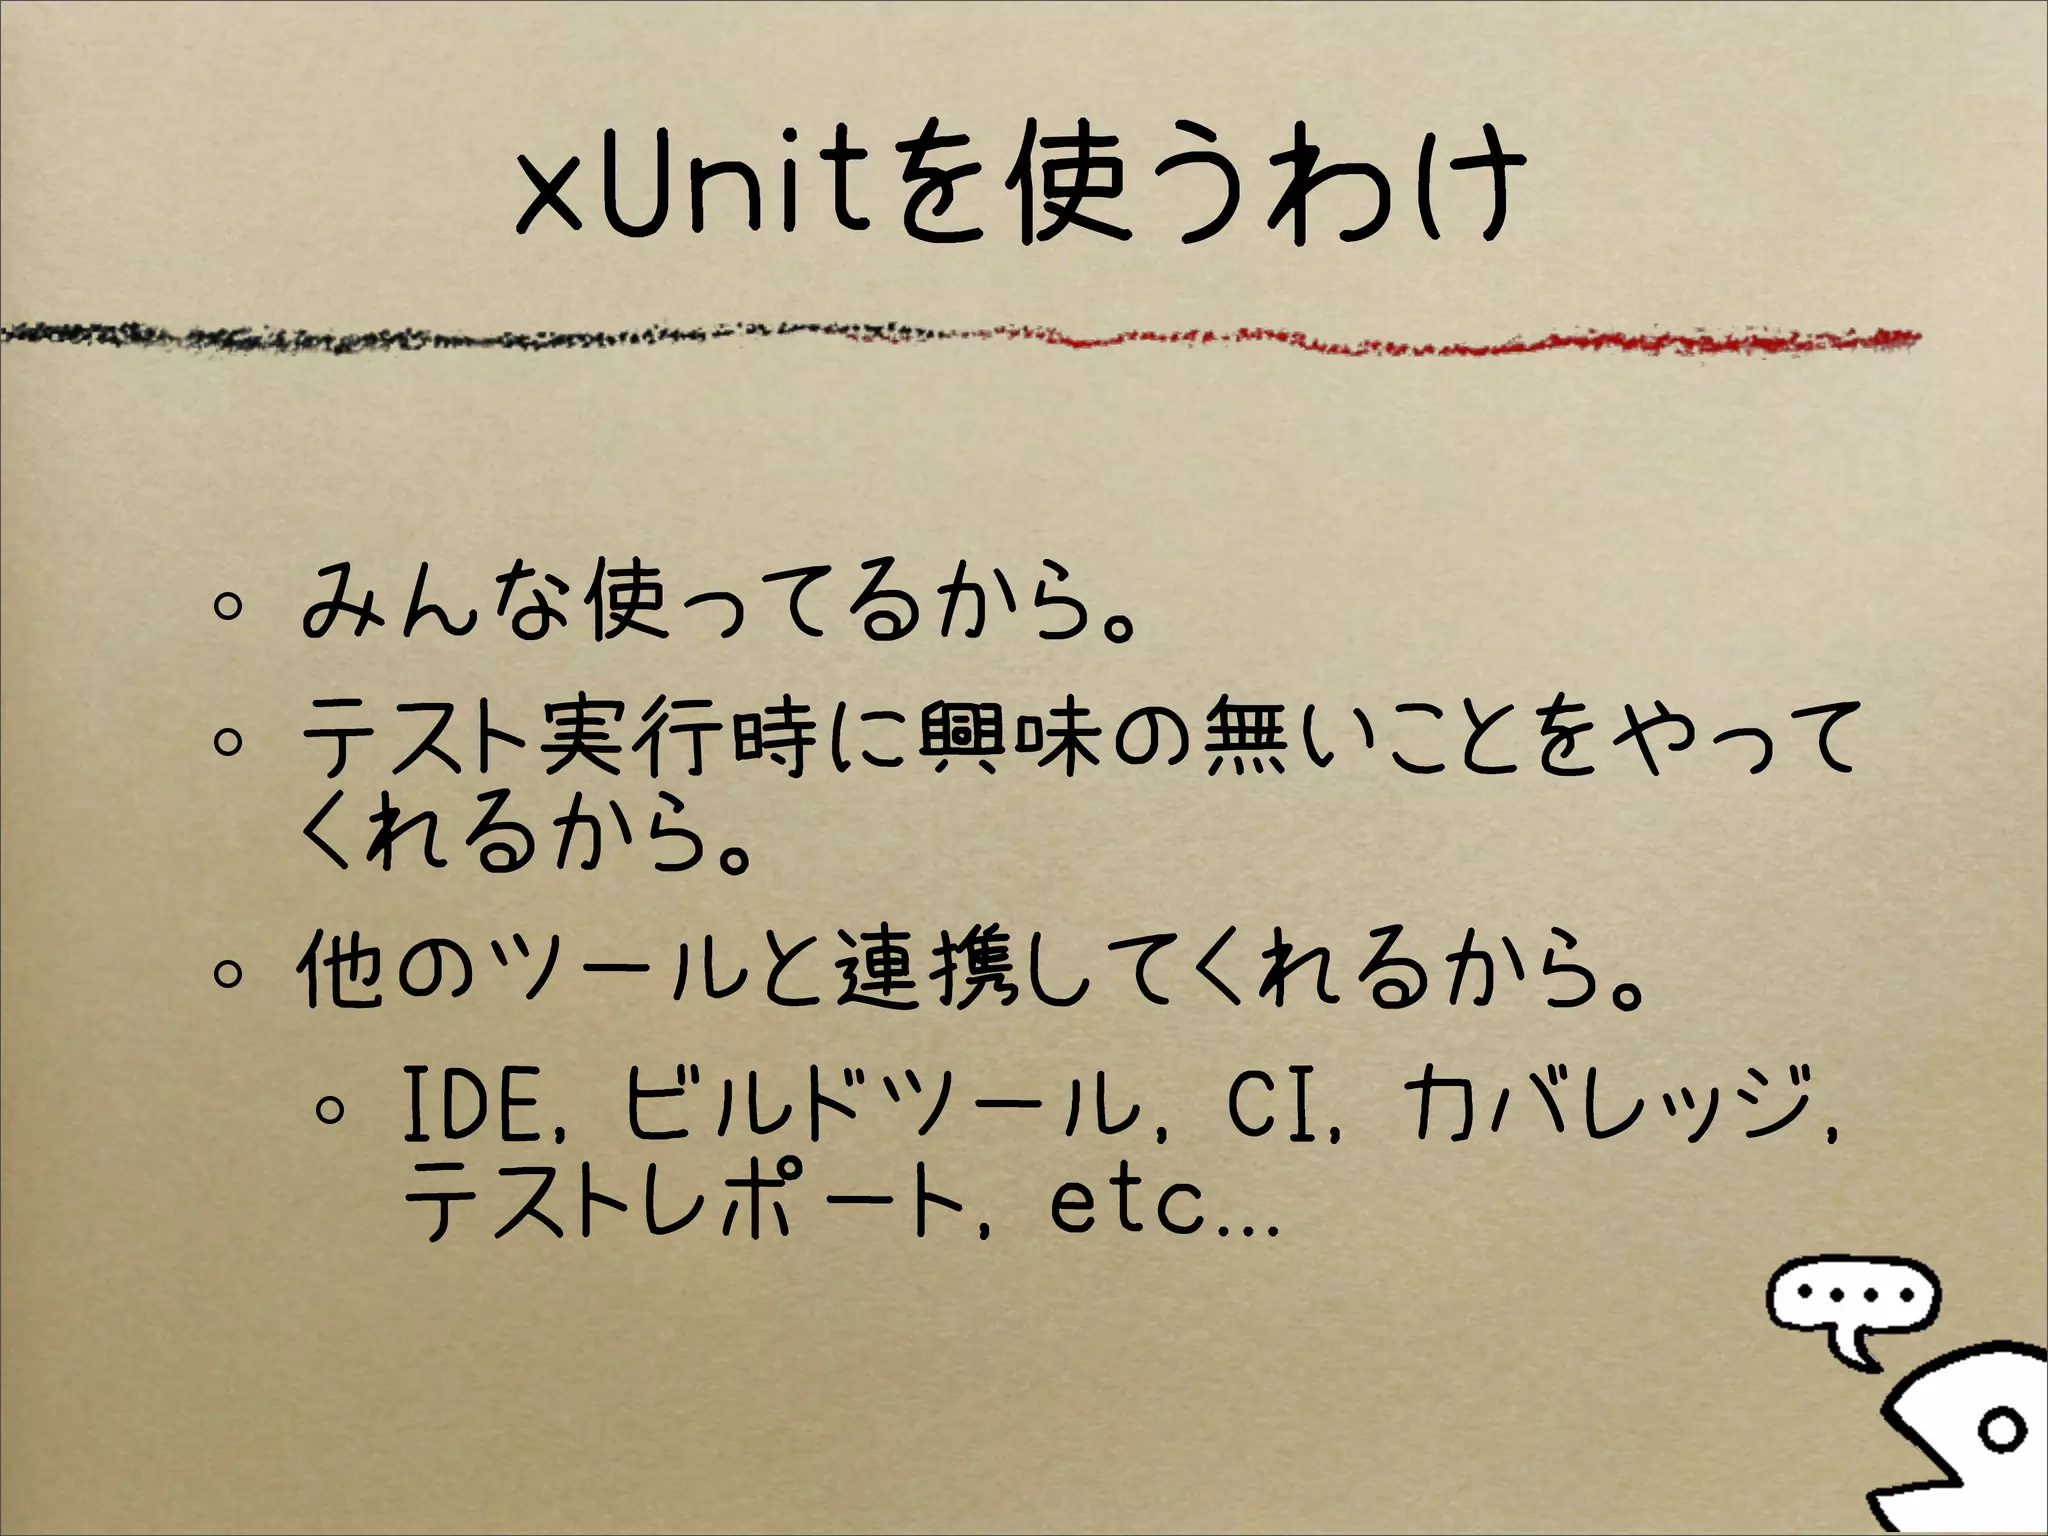 xUnitを使うわけ
。 みんな使ってるから。
。 テスト実行時に興味の無いことをやって
くれるから。
。 他のツールと連携してくれるから。
。 IDE, ビルドツール, CI, カバレッジ,
テストレポート, etc...
....